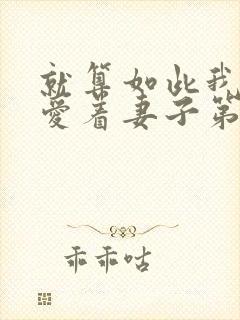 就算如此我
爱着妻子第
乖乖咕